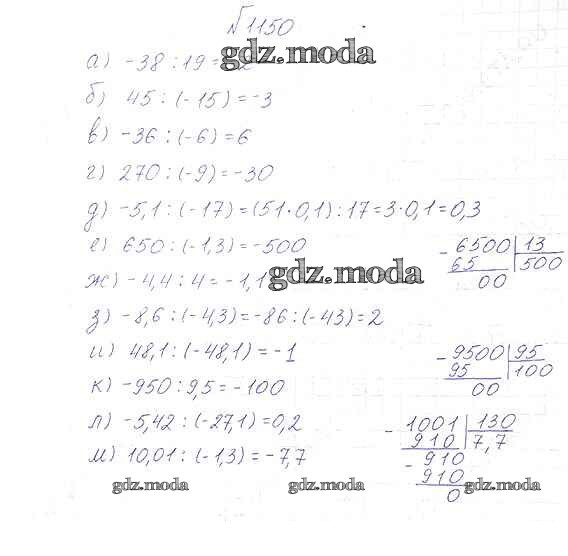 №1150
а) -38 : 19 =
gdz.moda
б) 45 : (-15) = -3
в) -36 : (-6) = 6
г) 270 : (-9) = -30
д) -5,1 : (-17) = (51·0,1) : 17 = 3·0,1 = 0,3
е) 650 : (-1,3) = -500
6500 13
65 500
00
ж) -4,4 : 4 = -1,1
gdz.moda
з) -8,6 : (-4,3) = -86 : (-43) = 2
и) 48,1 : (-48,1) = -1
9500 95
95 100
00
к) -950 : 9,5 = -100
л) -5,42 : (-27,1) = 0,2
1001 130
910 7,7
910
910
0
м) 10,01 : (-1,3) = -7,7
gdz.moda gdz.moda gdz.moda